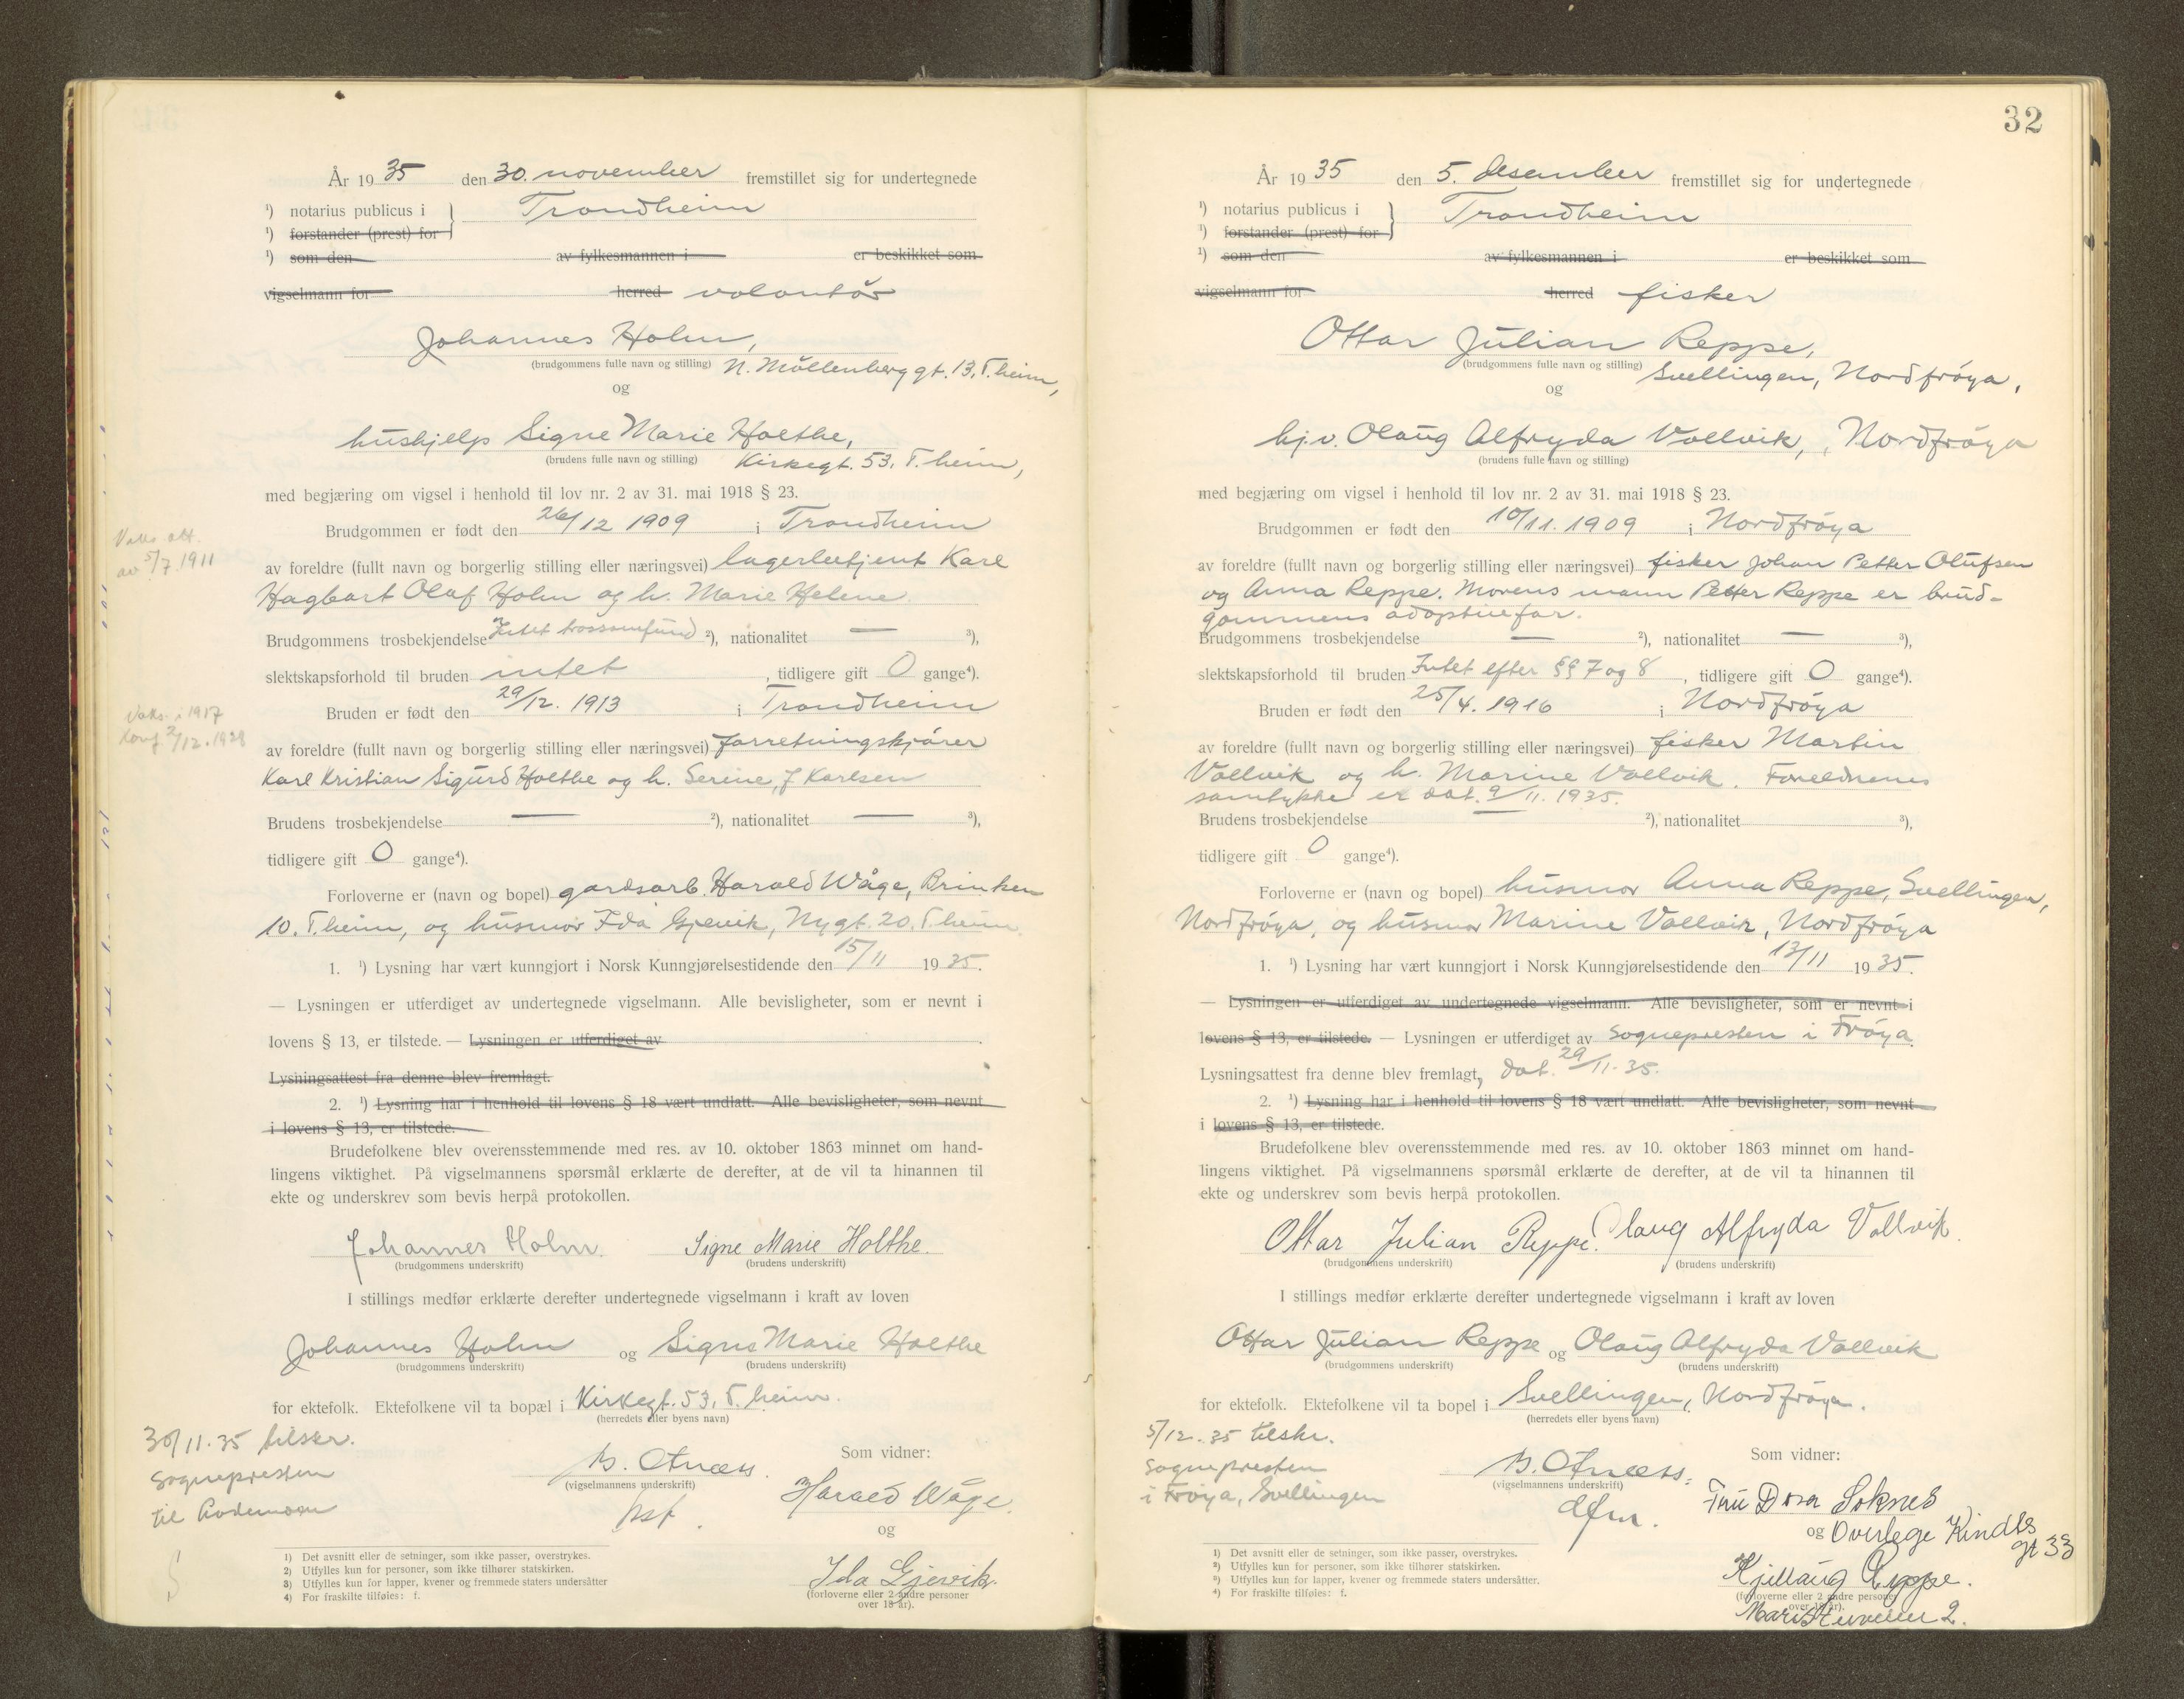 År 1935 den 30. november fremstillet sig for undertegnede
¹) notarius publicus i } Trondheim
¹) forstander (prest) for
¹) som den av fylkesmannen i er beskikket som
vigselmann for herred volontør
Johannes Holm,
(brudgommens fulle navn og stilling) N. Möllenberg gt. 13, T.heim,
og
hushjelp Signe Marie Holthe,
(brudens fulle navn og stilling) Kirkegt. 53, T.heim,
med begjæring om vigsel i henhold til lov nr. 2 av 31. mai 1918 § 23.
Brudgommen er født den 26/12 1909 i Trondheim
Vaks. att.
av 5/7 1911
av foreldre (fullt navn og borgerlig stilling eller næringsvei) lagerbetjent Karl
Hagbart Olaf Holm og h. Marie Helene
Brudgommens trosbekjendelse Intet trossamfund ²), nationalitet — ³),
slektskapsforhold til bruden intet, tidligere gift 0 gange⁴).
Bruden er født den 29/12. 1913 i Trondheim
Vaks. i 1917
konf 2/12. 1928
av foreldre (fullt navn og borgerlig stilling eller næringsvei) forretningskjører
Karl Kristian Sigurd Holthe og h. Serine, f Karlsen
Brudens trosbekjendelse — ²), nationalitet — ³),
tidligere gift 0 gange⁴).
Forloverne er (navn og bopel) gardsarb. Harald Wåge, Brinken
10. T.heim, og husmor Ida Gjevik, Nygt. 20. T.heim.
1. ¹) Lysning har vært kunngjort i Norsk Kunngjørelsestidende den 15/11 1935.
— Lysningen er utferdiget av undertegnede vigselmann. Alle bevisligheter, som er nevnt i
lovens § 13, er tilstede. — Lysningen er utferdiget av
Lysningsattest fra denne blev fremlagt.
2. ¹) Lysning har i henhold til lovens § 18 vært undlatt. Alle bevisligheter, som nevnt
i lovens § 13, er tilstede.
Brudefolkene blev overensstemmende med res. av 10. oktober 1863 minnet om hand-
lingens viktighet. På vigselmannens spørsmål erklærte de derefter, at de vil ta hinannen til
ekte og underskrev som bevis herpå protokollen.
Johannes Holm. Signe Marie Holthe.
(brudgommens underskrift) (brudens underskrift)
I stillings medfør erklærte derefter undertegnede vigselmann i kraft av loven
Johannes Holm og Signe Marie Holthe
(brudgommens underskrift) (brudens underskrift)
for ektefolk. Ektefolkene vil ta bopæl i Kirkegt. 53, T.heim.
(herredets eller byens navn)
30/11.35 tilskr.
sognepresten
til
Som vidner:
B. Otnæss.
(vigselmannens underskrift)
Harald Wåge.
og
Ida Gjevik.
(forloverne eller 2 andre personer
over 18 år).
1) Det avsnitt eller de setninger, som ikke passer, overstrykes.
2) Utfylles kun for personer, som ikke tilhører statskirken.
3) Utfylles kun for lapper, kvener og fremmede staters undersåtter
4) For fraskilte tilføies: f.
32
År 1935 den 5. desember fremstillet sig for undertegnede
¹) notarius publicus i } Trondheim
¹) forstander (prest) for
¹) som den av fylkesmannen i er beskikket som
vigselmann for herred fisker
Ottar Julian Reppe,
(brudgommens fulle navn og stilling) Svellingen, Nordfröya,
og
hj.v. Olaug Alfryda Vollvik, Nordfröya
(brudens fulle navn og stilling)
med begjæring om vigsel i henhold til lov nr. 2 av 31. mai 1918 § 23.
Brudgommen er født den 10/11. 1909 i Nordfröya
av foreldre (fullt navn og borgerlig stilling eller næringsvei) fisker Johan Petter Olufsen
og Anna Reppe. Morens mann Petter Reppe er brud-
gommens adoptivefar.
Brudgommens trosbekjendelse — ²), nationalitet — ³),
slektskapsforhold til bruden Intet efter §§ 7 og 8, tidligere gift 0 gange⁴).
Bruden er født den 25/4. 1916 i Nordfröya
av foreldre (fullt navn og borgerlig stilling eller næringsvei) fisker Martin
Vollvik og h. Marine Vollvik. Foreldrenes
samtykke er dat. 9/11. 1935.
Brudens trosbekjendelse — ²), nationalitet ³),
tidligere gift 0 gange⁴).
Forloverne er (navn og bopel) husmor Anna Reppe, Svellingen,
Nordfröya, og husmor Marine Vollvik, Nordfröya
1. ¹) Lysning har vært kunngjort i Norsk Kunngjørelsestidende den 13/11 1935.
— Lysningen er utferdiget av undertegnede vigselmann. Alle bevisligheter, som er nevnt i
lovens § 13, er tilstede. — Lysningen er utferdiget av sognepresten i Fröya
Lysningsattest fra denne blev fremlagt, dat. 29/11.35.
2. ¹) Lysning har i henhold til lovens § 18 vært undlatt. Alle bevisligheter, som nevnt
i lovens § 13, er tilstede.
Brudefolkene blev overensstemmende med res. av 10. oktober 1863 minnet om hand-
lingens viktighet. På vigselmannens spørsmål erklærte de derefter, at de vil ta hinannen til
ekte og underskrev som bevis herpå protokollen.
Ottar Julian Reppe. Olaug Alfryda Vollvik.
(brudgommens underskrift) (brudens underskrift)
I stillings medfør erklærte derefter undertegnede vigselmann i kraft av loven
Ottar Julian Reppe og Olaug Alfryda Vollvik
(brudgommens underskrift) (brudens underskrift)
for ektefolk. Ektefolkene vil ta bopel i Svellingen, Nordfröya.
(herredets eller byens navn)
5/12.35 tilskr.
sognepresten
i Fröya, Svellingen
Som vidner:
B. Otnæss.
(vigselmannens underskrift)
dfm.
Fru Dora Soknes
og Overlege Kindts
gt 33
Kjellaug Reppe.
(forloverne eller 2 andre personer
over 18 år).
2.
1) Det avsnitt eller de setninger, som ikke passer, overstrykes.
2) Utfylles kun for personer, som ikke tilhører statskirken.
3) Utfylles kun for lapper, kvener og fremmede staters undersåtter.
4) For fraskilte tilføies: f.